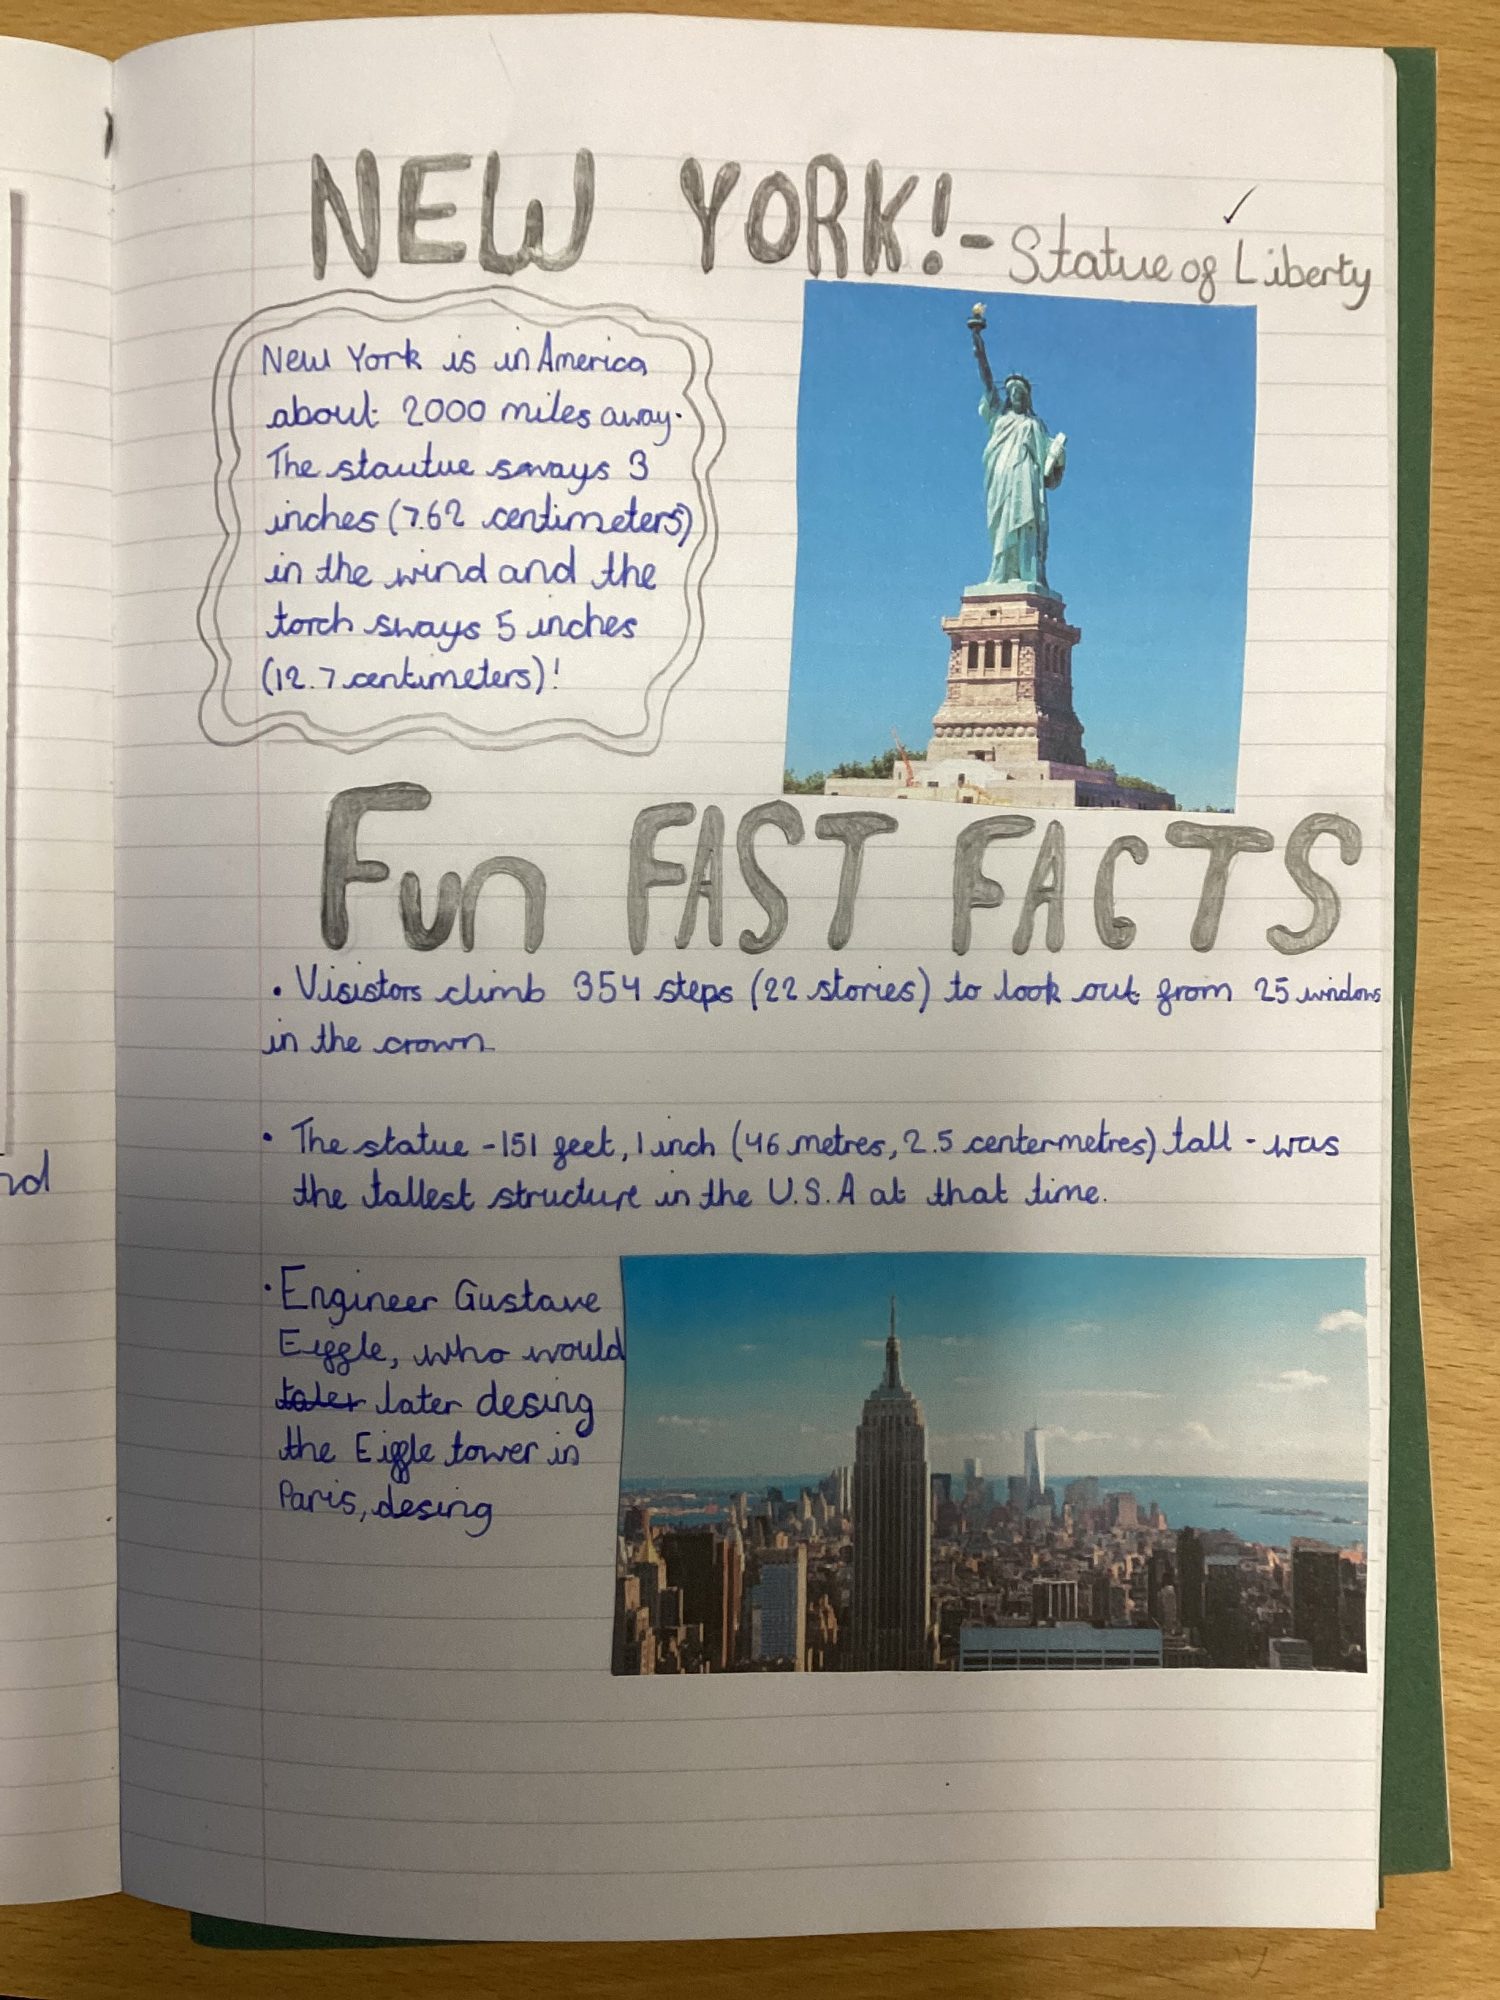 NEW YORK! - Statue of Liberty
New York is in America
about 2000 miles away.
The stautue sways 3
inches (7.62 centimeters)
in the wind and the
torch sways 5 inches
(12.7 centimeters)!
Fun FAST FACTS
• Visistors climb 354 steps (22 stories) to look out from 25 windows
in the crown
• The statue - 151 feet, 1 inch (46 metres, 2.5 centermetres) tall - was
the tallest structure in the U.S.A at that time.
• Engineer Gustave
Eiggle, who would
later desing
the Eiggle tower in
Paris, desing
nd